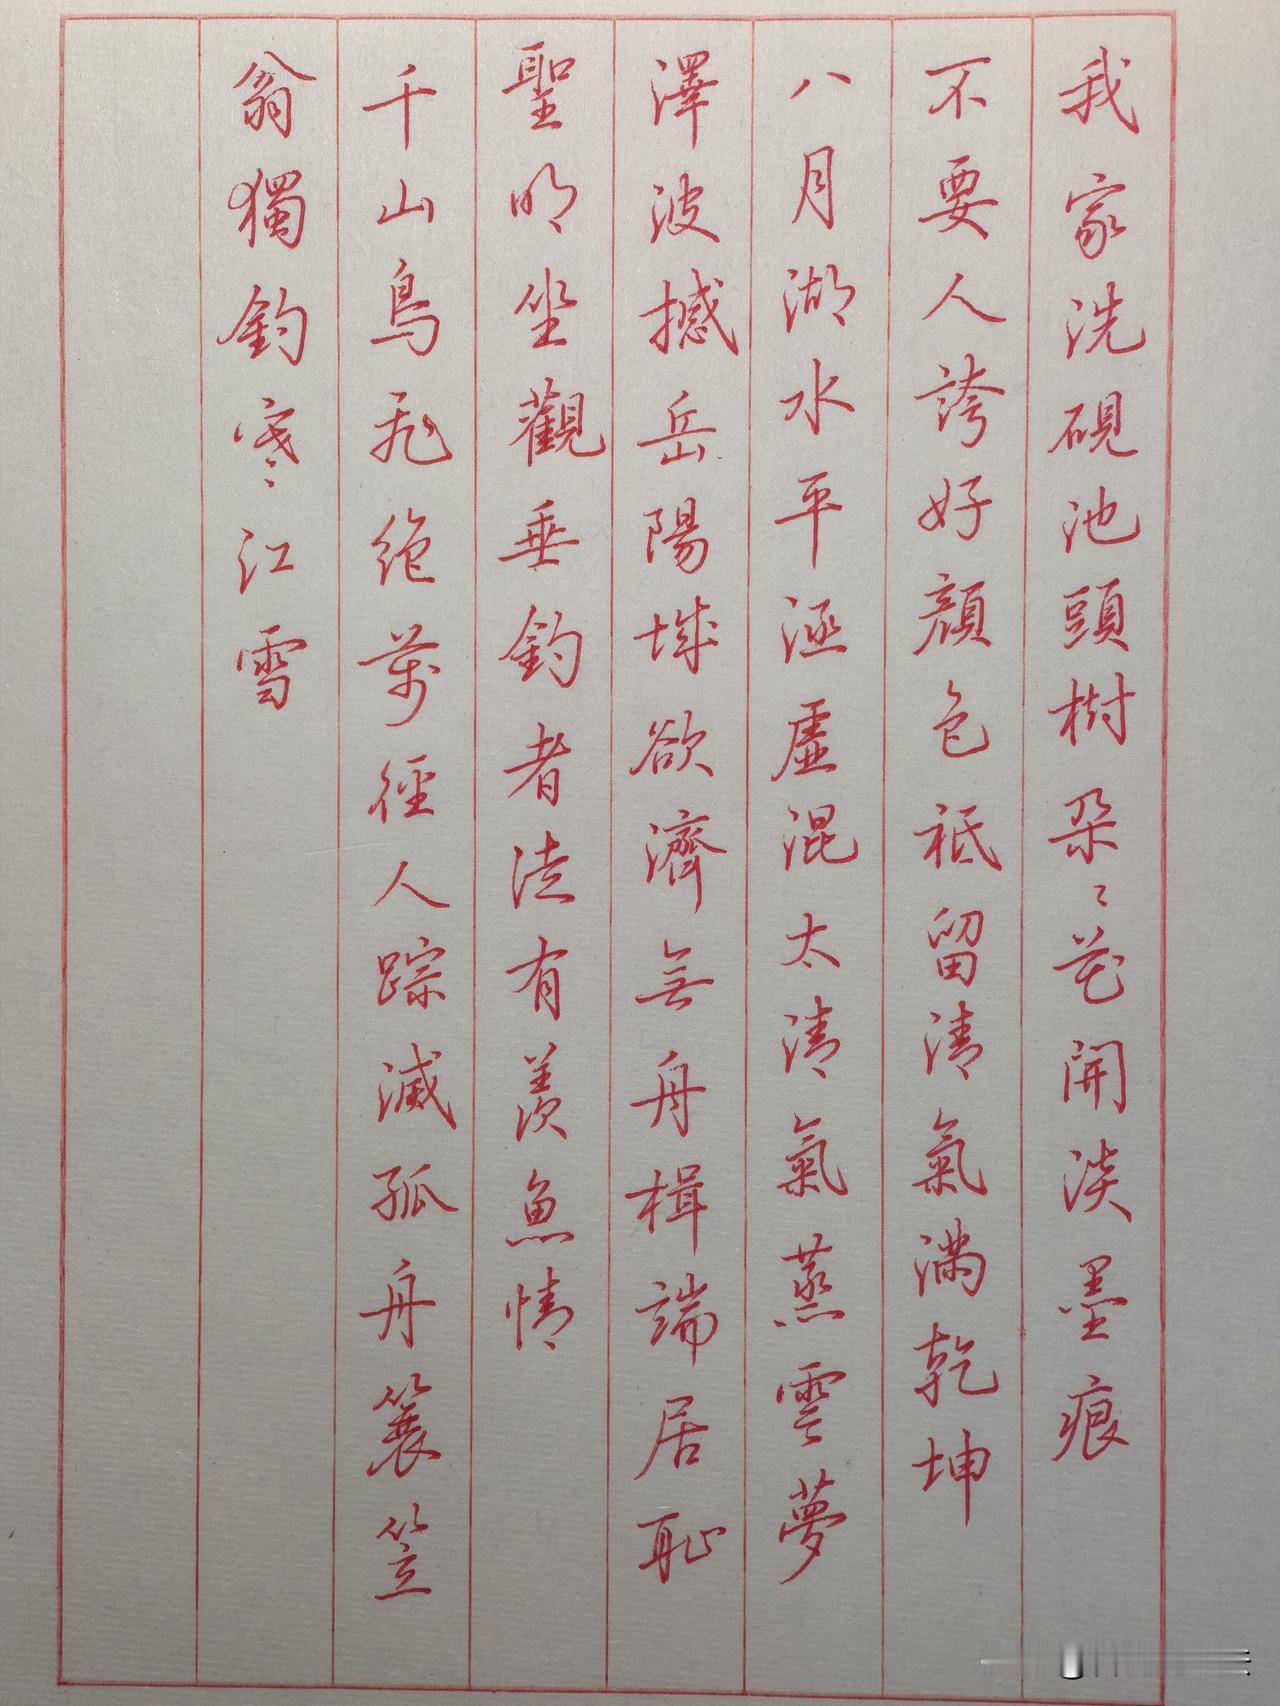 我家洗硯池頭樹朵〻花開淡墨痕
不要人誇好顏色祗留清氣滿乾坤
八月湖水平涵虛混太清氣蒸雲夢
澤波撼岳陽城欲濟無舟楫端居恥
聖明坐觀垂釣者徒有羨魚情
千山鳥飛絕萬徑人踪滅孤舟簑笠
翁獨釣寒江雪